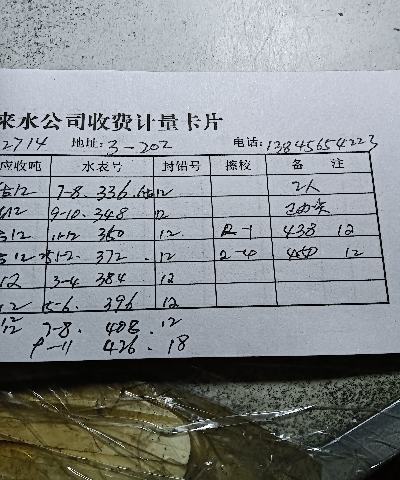 来水公司收费计量卡片
2714 地址: 3-202 电话: 13845654223
应收吨 水表号 封铅号 擦校 备 注
12 7-8. 336. 12 2人
12 9-10. 348 12
12 11-12 360 12 12-1 438 12
12 1-2. 372 12 2-4 450 12
12 3-4 384 12
12 5-6. 396 12
12 7-8. 408. 12
9-11 426. 18